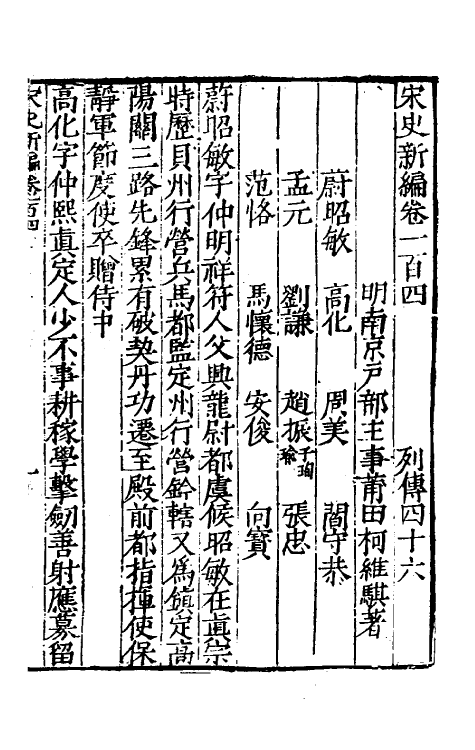 宋史新編卷一百四 列傳四十六
明南京戶部主事莆田柯維騏著
蔚昭敏 高化 周美 閻守恭
孟元 劉謙 趙振子珣瑜 張忠
范恪 馬懷德 安俊 向寶
蔚昭敏字仲明祥符人父興龍尉都虞候昭敏在眞宗
時歷貝州行營兵馬都監定州行營鈐轄又爲鎮定高
陽關三路先鋒累有破契丹功遷至殿前都指揮使保
靜軍節度使卒贈侍中
高化字仲熙眞定人少不事耕稼學擊劒善射應募留
宋史新編卷百四